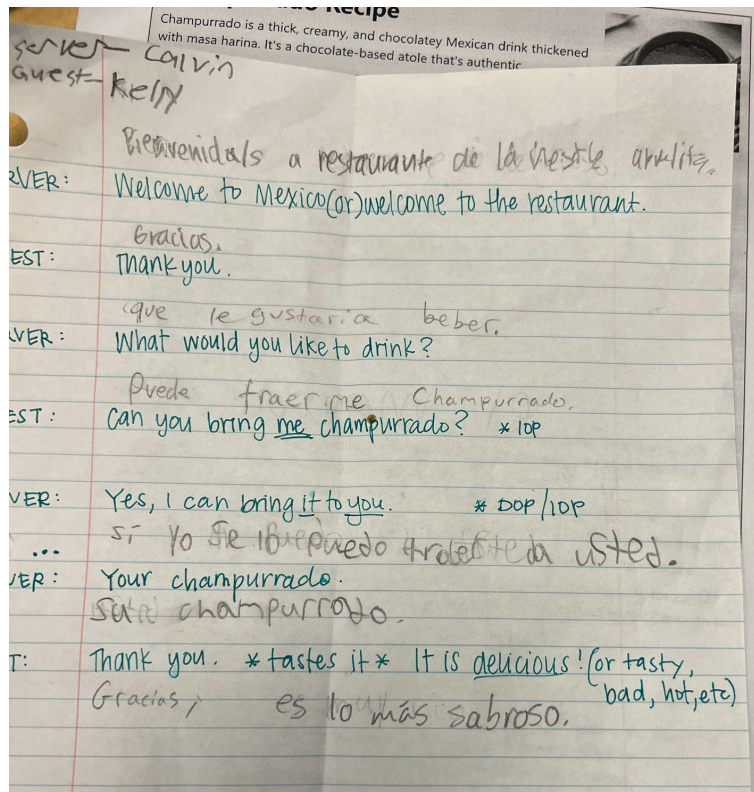 Recipe
Champurrado is a thick, creamy, and chocolatey Mexican drink thickened
with masa harina. It's a chocolate-based atole that's authentic
server- Calvin
Guest- Kelly
a restaurante de la
RVER: Welcome to Mexico(or)welcome to the restaurant.
Gracias.
EST: Thank you.
que le gustaria beber.
RVER: What would you like to drink?
Puede traer me Champurrado.
EST: Can you bring me champurrado? * IOP
VER: Yes, I can bring it to you. * DOP/IOP
sí Yo se lo puedo usted.
...
VER: Your champurrado.
champurrado.
T: Thank you. *tastes it* It is delicious! (or tasty,
bad, hot, etc)
Gracias, es lo más sabroso.